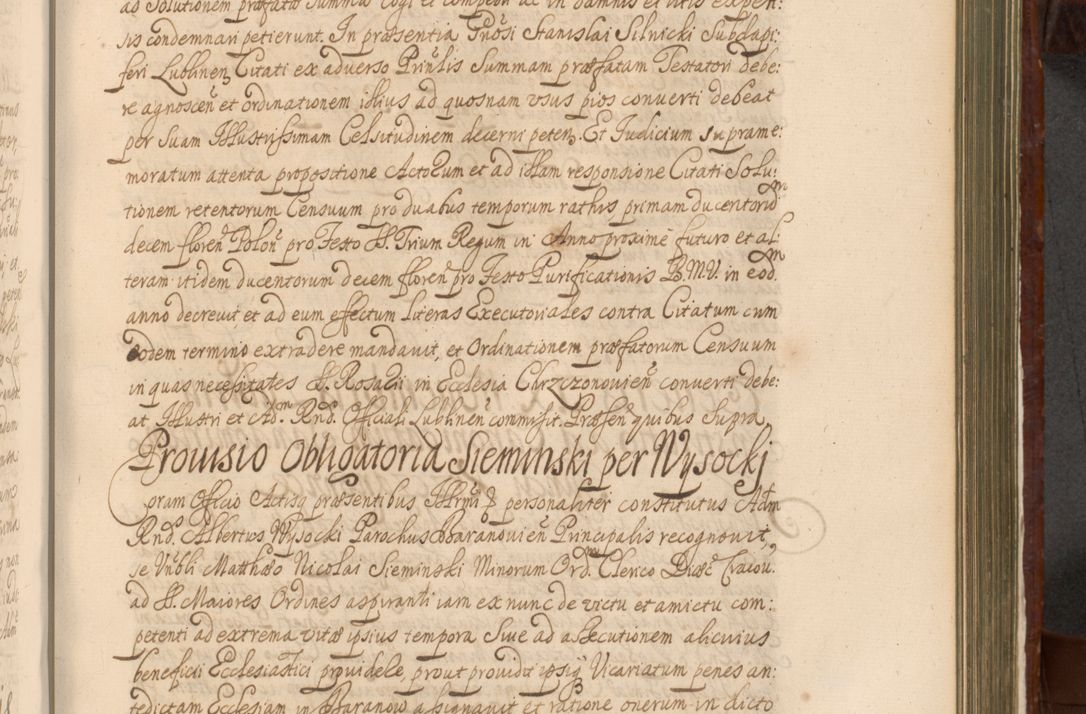 ad Solutionem præfatæ Summæ cogi et compelli ac in damnis et litis expen:
sis condemnari petierunt. In præsentia Gñosi Stanislai Silnicki Subdapi:
feri Lublinen Citati ex adverso Prinlis Summam præfatam Testatori debe:
re agnoscen et ordinationem illius ad quosnam vsus pios conuerti debeat
per Suam Illustrissimam Celsitudinem decerni peten. Et Iudicium supra me:
moratum attenta propositione Actorum et ad illam responsione Citati Solu:
tionem retentorum Censuum pro duabus temporum rathis primam ducentorum
decem floren Polon pro Festo SS. Trium Regum in Anno proxime futuro et al:
teram itidem ducentorum decem floren pro Festo Purificationis B. M. V. in eodm
anno decreuit, et ad eum effectum literas Executoriales contra Citatum cum
eodem termino extradere mandauit, et Ordinationem præfatorum Censuum
in quas necessitates SS. Rosarii in Ecclesia Chrzczonouien conuerti debe:
at Illustri et Adm Rnd. Officiali Lublinen commisit. Præsen quibus supra.
Prouisio Obligatoria Sieminski per Wysockj
Coram Officio Actisq præsentibus Illrmi P personaliter constitutus Adm
Rnd. Albertus Wysocki Parochus Baranouien Principalis recognouit,
se Vnbli Matthæo Nicolai Sieminski Minorum Ordm Clerico Diæc Cracou.
ad SS. Maiores Ordines aspiranti iam ex nunc de victu et amictu com:
petenti ad extrema vitæ ipsius tempora siue ad assecutionem alicuius
beneficii Ecclesiastici prouidele, prout prouidit ipsiq Vicariatum penes an:
tedictam Ecclesiam in Baranow assignauit et ratione onerum in dicto